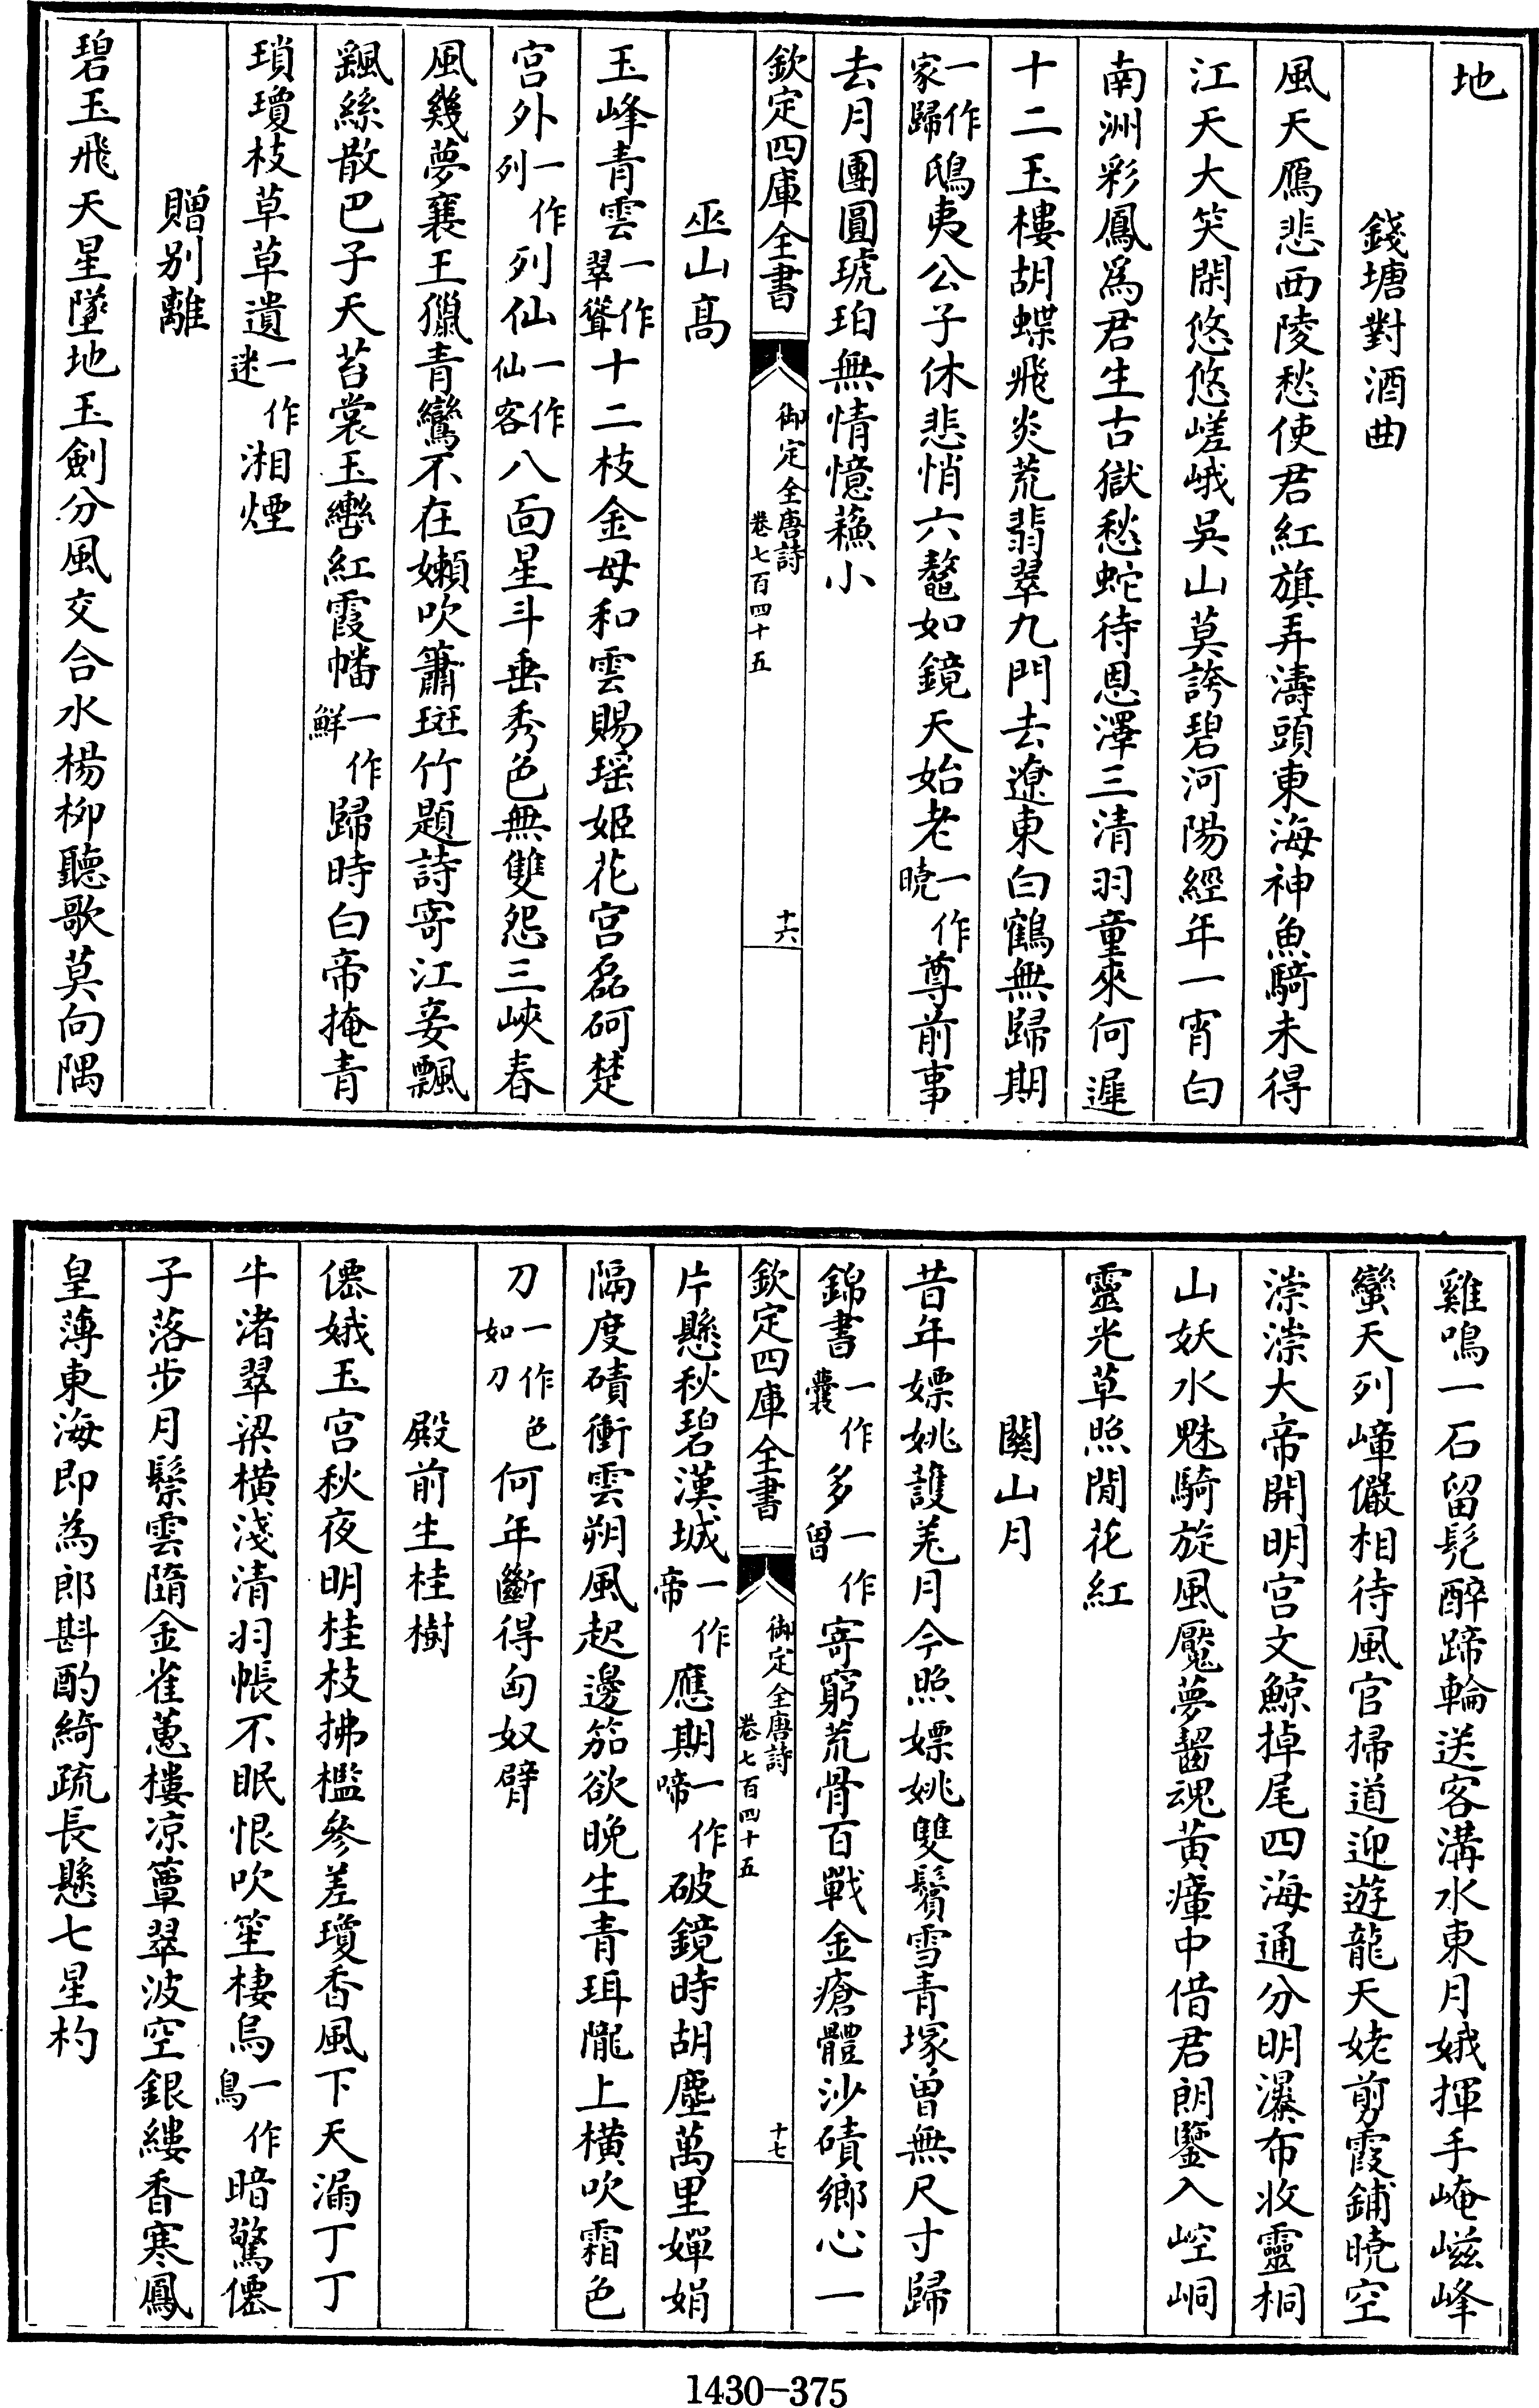 地
錢塘對酒曲
風天鴈悲西陵愁使君紅旗弄濤頭東海神魚騎未得
江天大笑閑悠悠嵯峨吳山莫誇碧河陽經年一宵白
南洲彩鳳爲君生古獄愁蛇待恩澤三清羽童來何遲
十二玉樓胡蝶飛炎荒翡翠九門去遼東白鶴無歸期
一作家歸鴟夷公子休悲悄六鼇如鏡天始老一作曉尊前事
去月團圓琥珀無情憶蘓小
欽定四庫全書 御定全唐詩 卷七百四十五 十六
巫山高
玉峰青雲一作翠聳十二枝金母和雲賜瑶姬花宫磊砢楚
宫外一作列列仙一作仙客八面星斗垂秀色無雙怨三峽春
風幾夢襄王獵青鸞不在嬾吹簫斑竹題詩寄江妾飄
飄絲散巴子天苔裳玉轡紅霞幡一作鮮歸時白帝掩青
瑣瓊枝草草遺一作迷湘煙
贈别離
碧玉飛天星墜地玉劍分風交合水楊柳聽歌莫向隅
雞鳴一石留髡醉蹄輪送客溝水東月娥揮手崦嵫峰
蠻天列嶂儼相待風官掃道迎遊龍天姥剪霞鋪曉空
漴漴大帝開明宫文鯨掉尾四海通分明瀑布收靈桐
山妖水魅騎旋風魘夢齧魂黄瘴中借君朗鑒入崆峒
靈光草照閒花紅
關山月
昔年嫖姚護羌月今照嫖姚雙鬢雪青塚曽無尺寸歸
錦書一作囊多一作曽寄窮荒骨百戰金瘡體沙磧鄉心一
欽定四庫全書 御定全唐詩 卷七百四十五 十七
片懸秋碧漢城一作帝應期一作啼破鏡時胡塵萬里嬋娟
隔度磧衝雲朔風起邊笳欲晚生青珥隴上横吹霜色
刀一作色如刀何年斷得匈奴臂
殿前生桂樹
僊娥玉宫秋夜明桂枝拂檻參差瓊香風下天漏丁丁
牛渚翠梁横淺清羽帳不眠恨吹笙棲烏一作鳥暗驚僊
子落步月鬃雲墮金雀蔥樓凉簟翠波空銀縷香寒鳳
皇薄東海即為郎斟酌綺疏長懸七星杓
1430-375